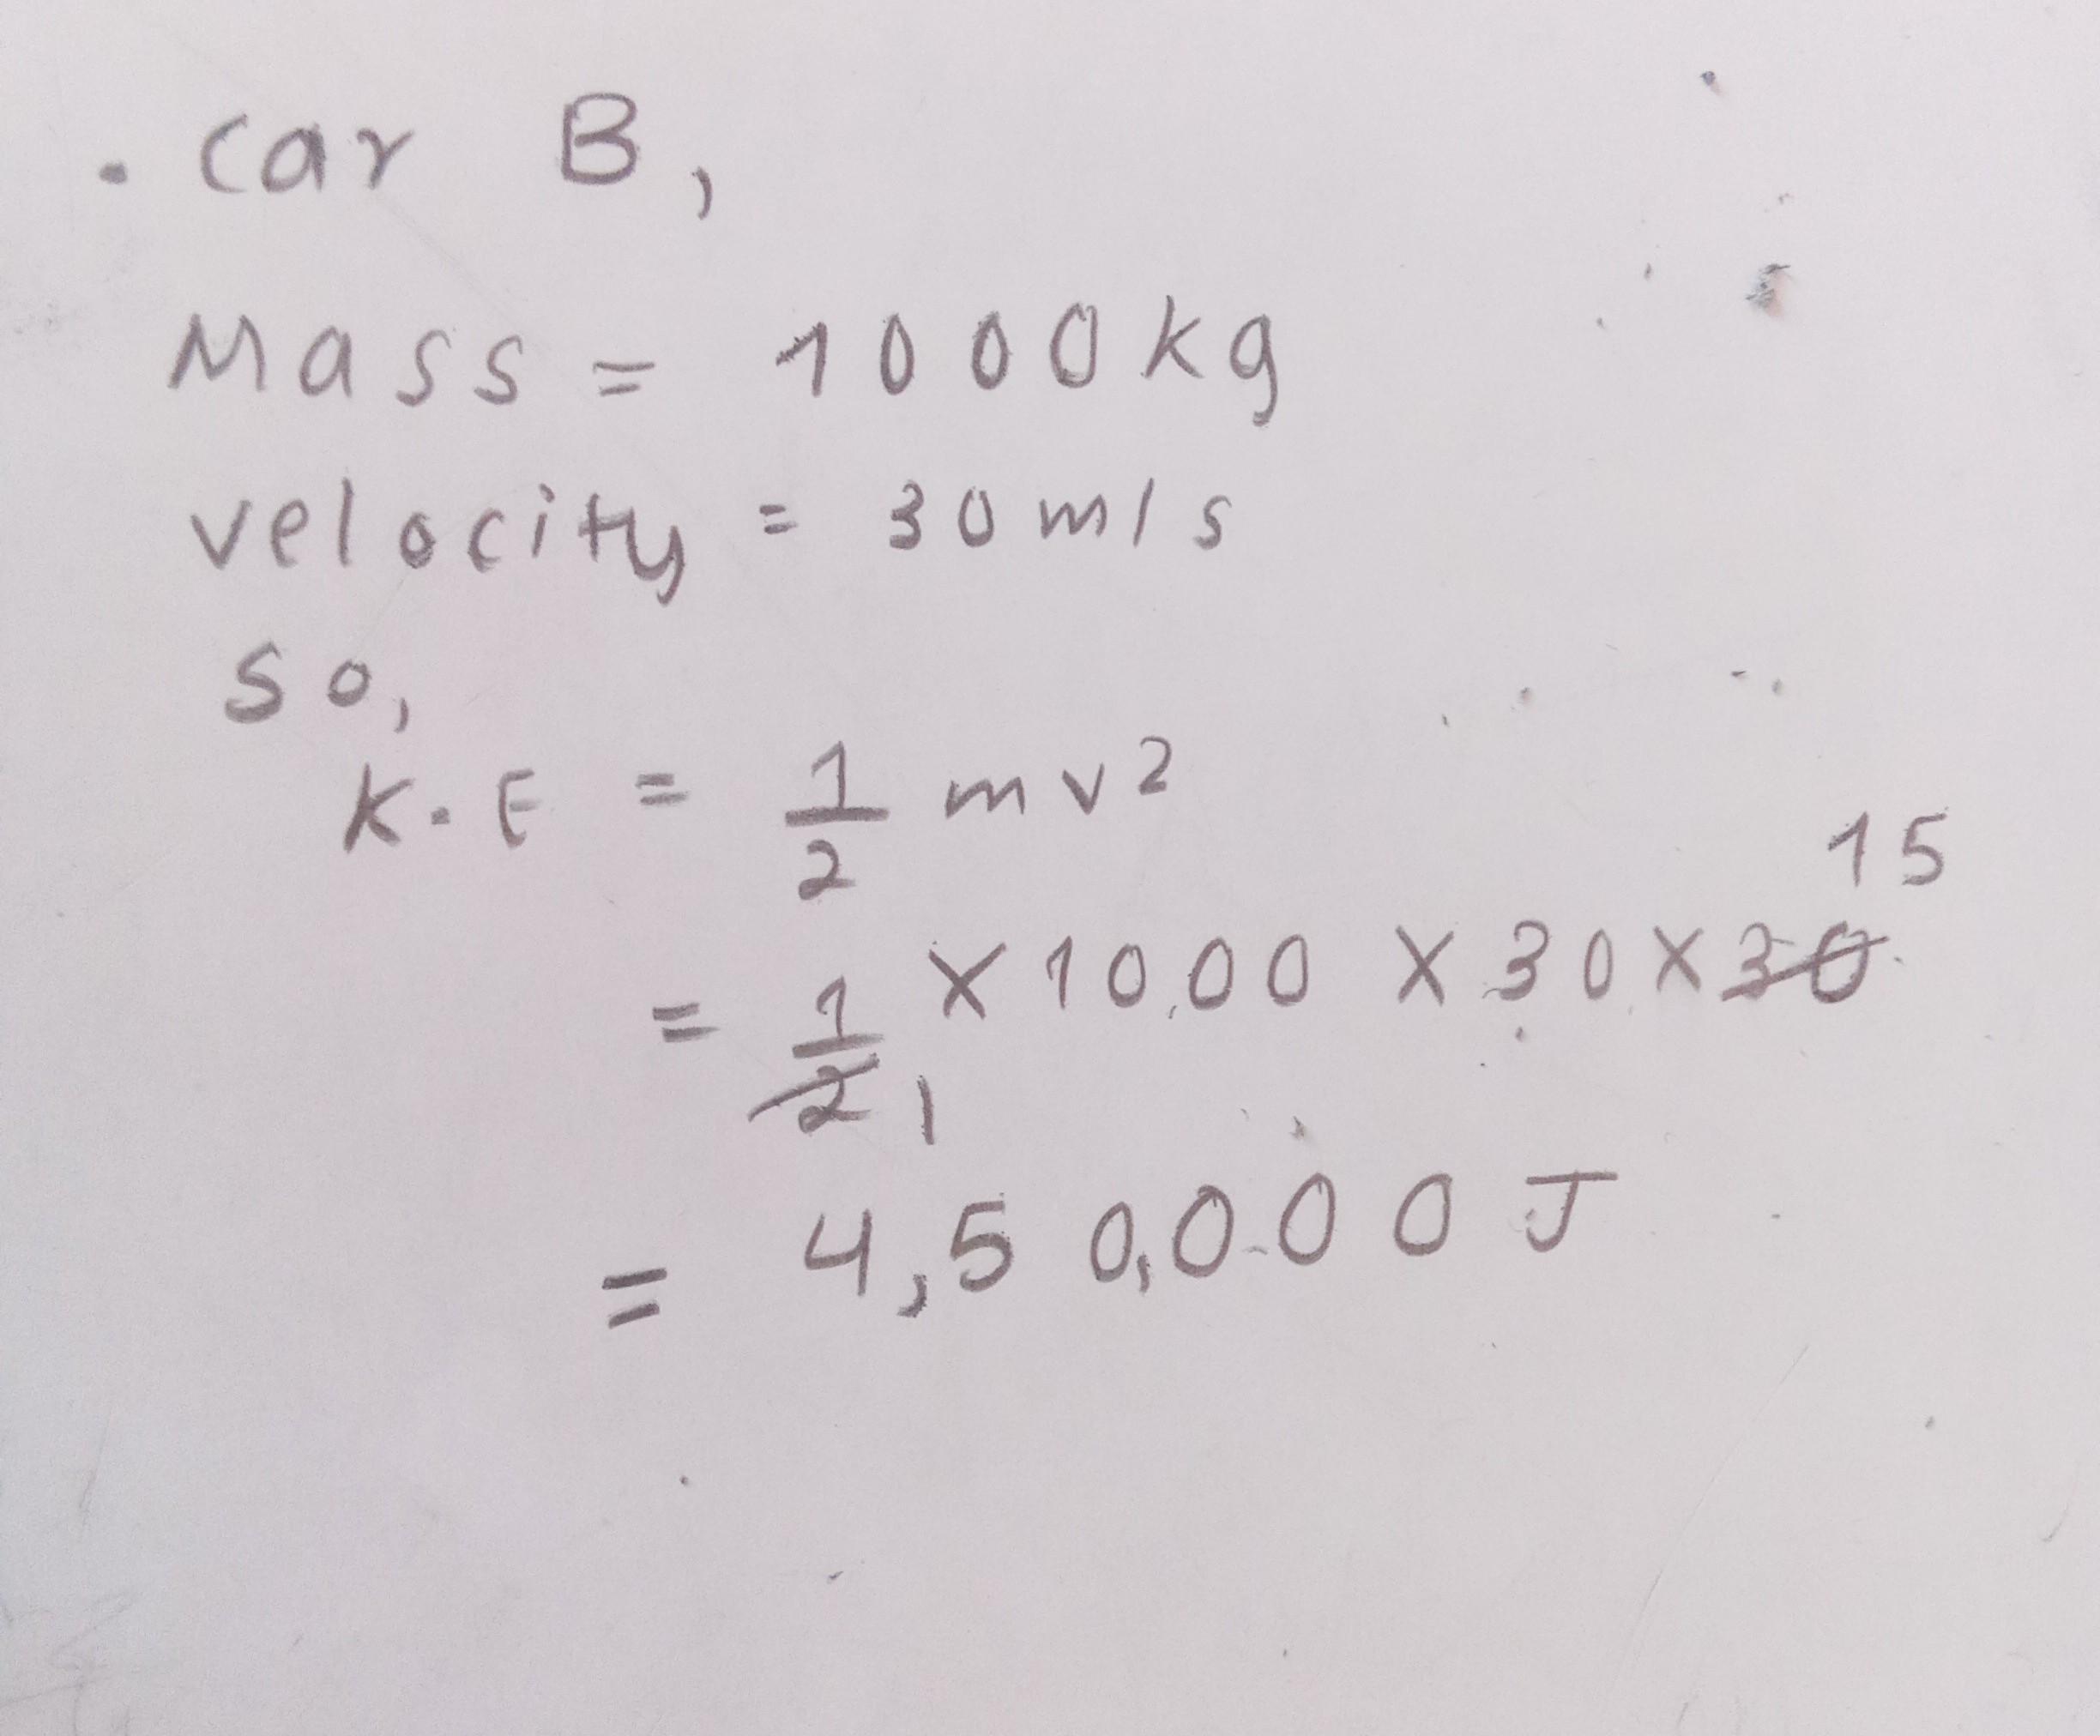 . Car B,
Mass = 1000 kg
velocity = 30 m/s
So,
K.E = 1/2 mv²
15
= 1/2 1 × 1000 × 30 × 30
= 4,50,000 J